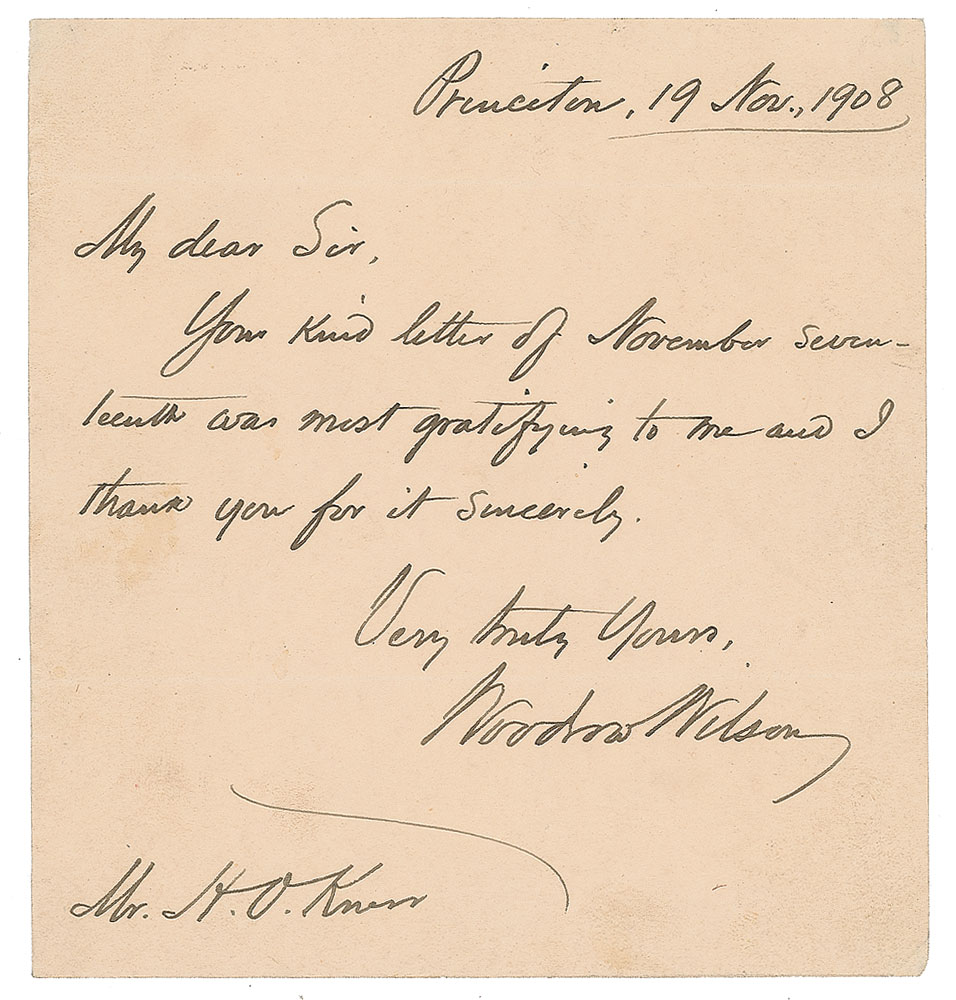 Princeton, 19 Nov., 1908
My dear Sir,
Your kind letter of November seven-
teenth was most gratifying to me and I
thank you for it sincerely.
Very truly Yours,
Woodrow Wilson
Mr. H. O. Knerr